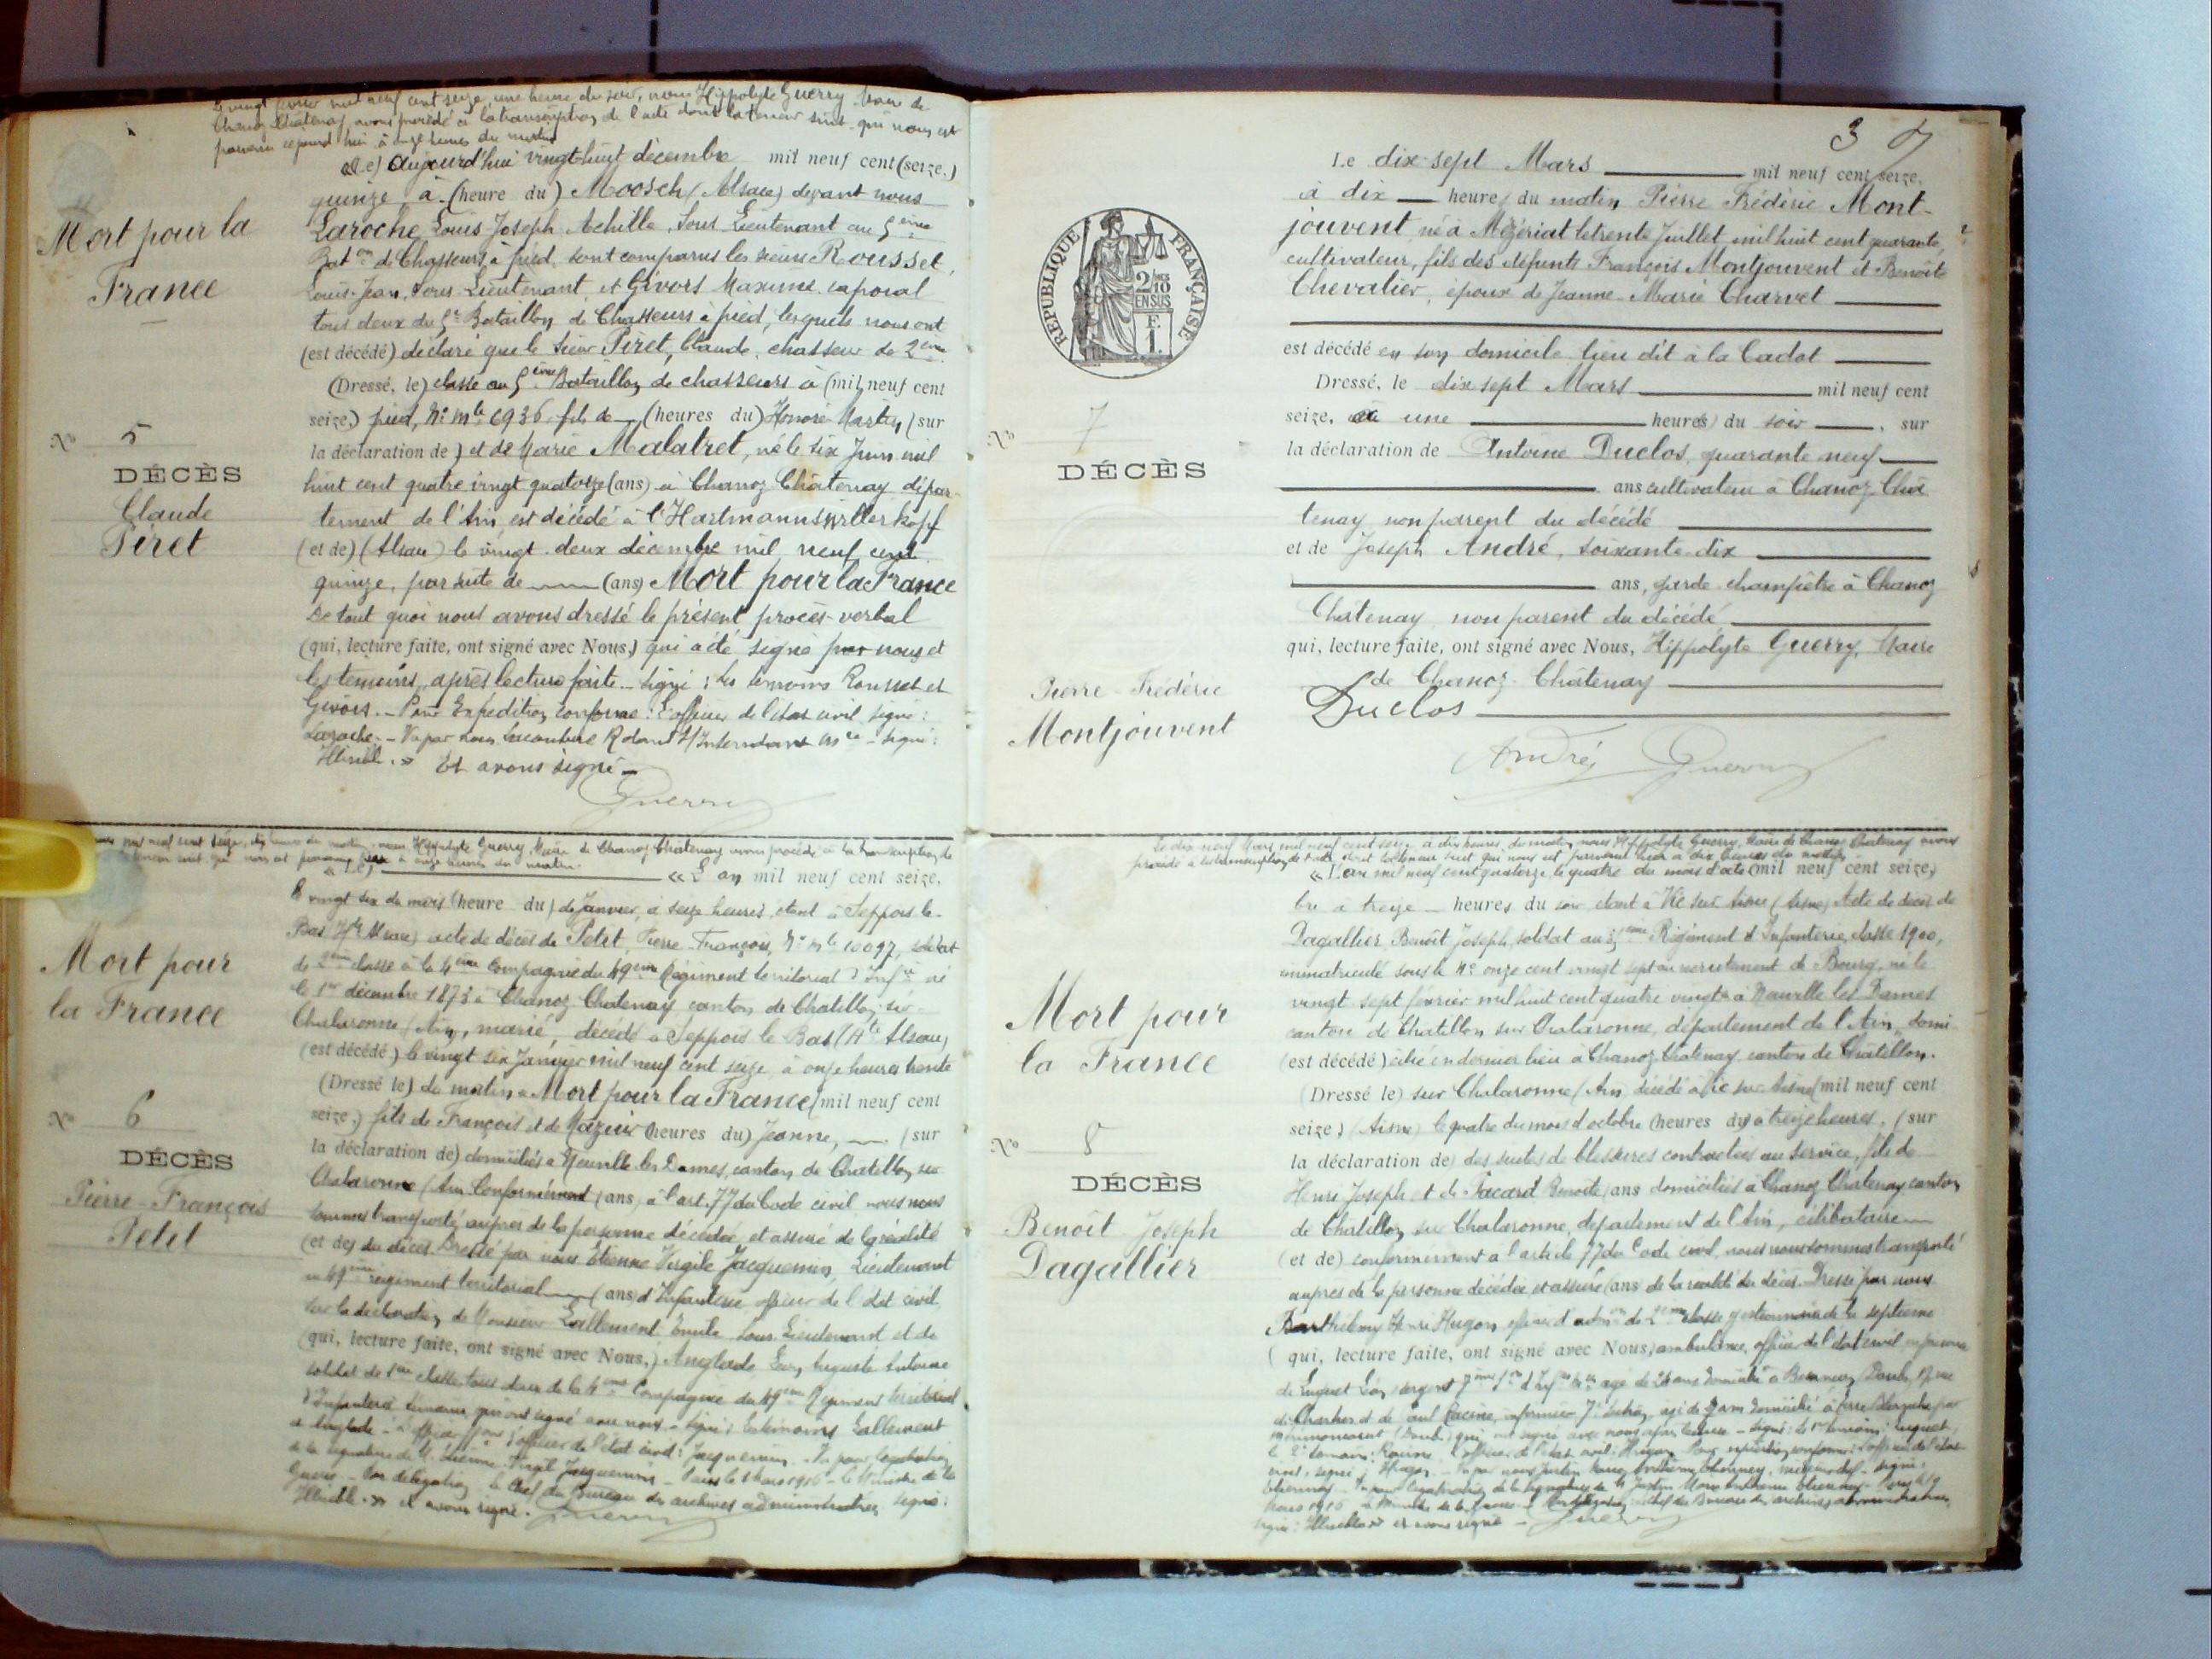 Le vingt février mil neuf cent seize, une heure du soir, nous Hippolyte Guerry Maire de
Chanoz Châtenay avons procédé à la transcription de l'acte dont la teneur suit qui nous est
parvenu ce jourd'hui à onze heures du matin
(Le) Aujourd'hui vingt huit décembre mil neuf cent (seize.)
quinze, à (heure du) Moosch (Alsace) devant nous
Laroche, Louis Joseph Achille, Sous Lieutenant au 5ème
Bat on de Chasseurs à pied, sont comparus les sieurs Rousset,
Louis-Jean, Sous-Lieutenant, et Givors Maxime caporal
tous deux du 5e Bataillon de Chasseurs à pied, lesquels nous ont
(est décédé) déclaré que le sieur Piret, Claude, chasseur de 2ème
(Dressé, le) classe au 5ème Bataillon de chasseurs à (mil neuf cent
seize,) pied, N° mle 6936 fils de (heures du) Honoré Martin (sur
la déclaration de) et de Marie Malatret, né le six Juin mil
huit cent quatre vingt quatorze (ans) à Chanoz Châtenay, dépar-
tement de l'Ain, est décédé à l'Hartmannswillerkopf
(et de) (Alsace) le vingt-deux décembre mil neuf cent
quinze, par suite de (ans) Mort pour la France
De tout quoi nous avons dressé le présent procès-verbal
(qui, lecture faite, ont signé avec Nous,) qui a été signé par nous et
les témoins, après lecture faite. Signé : les témoins Rousset et
Givors. Pour Expédition conforme : L'officier de l'état civil, signé :
Laroche. Vu par nous
Illisible. » Et avons signé
Guerry
Mort pour la
France
N° 5
DÉCÈS
Claude
Piret
mil neuf cent seize, dix heures du matin, nous Hippolyte Guerry, Maire de Chanoz Châtenay avons procédé à la transcription de
teneur suit qui nous est parvenu à onze heures du matin.
« (Le) « L'an mil neuf cent seize,
le vingt six du mois (heure du) de Janvier, à seize heures, étant à Seppois le-
Bas (Hte Alsace) acte de décès de Petit Pierre François, N° mle 10097, soldat
de 2ème classe à la 4ème Compagnie du 49ème Régiment territorial d'inf ie né
le 1er décembre 1873 à Chanoz Chatenay canton de Chatillon sur
Chalaronne (Ain), marié, décédé à Seppois le Bas (Hte Alsace)
(est décédé) le vingt six Janvier mil neuf cent seize, à onze heures trente
(Dressé le) du matin « Mort pour la France (mil neuf cent
seize,) fils de François et de Mazuir (heures du) Jeanne, (sur
la déclaration de) domiciliés à Neuville les Dames, canton de Chatillon sur
Chalaronne (Ain Conformément (ans) à l'art. 77 du Code civil nous nous
sommes transporté auprès de la personne décédée et assuré de la réalité
(et de) du décès. Dressé par nous Etienne Virgile Jacquemin, Lieutenant
au 49ème régiment territorial (ans) d'Infanterie officier de l'état civil
sur la déclaration de Monsieur Lallement Emile Sous Lieutenant et de
(qui, lecture faite, ont signé avec Nous,) Anglade Léon Auguste Antoine
soldat de 1ère classe tous deux de la 4ème Compagnie du 49ème Régiment territorial
d'Infanterie témoins qui ont signé avec nous. Signé : Les témoins Lallement
et Anglade. L'officier de l'état civil : Jacquemin. Vu pour légalisation
de la signature de M. Etienne Virgile Jacquemin. Paris le 1 Mars 1916. Le Ministre de la
Guerre. Par délégation le Chef du Bureau des archives administratives, signé :
Illisible. » et avons signé. Guerry
Mort pour
la France
N° 6
DÉCÈS
Pierre-François
Petit
3
Le dix-sept Mars mil neuf cent seize,
à dix heures du matin Pierre Frédéric Mont-
jouvent, né à Mézériat le trente Juillet mil huit cent quarante,
cultivateur, fils des défunts François Montjouvent et Benoîte
Chevalier, époux de Jeanne-Marie Charvet
est décédé en son domicile, lieu dit à la Cadot
Dressé, le dix sept Mars mil neuf cent
seize, à une heures du soir, sur
la déclaration de Antoine Duclos, quarante neuf
ans cultivateur à Chanoz Châ
tenay, non parent du décédé
et de Joseph André, soixante-dix
ans, garde-champêtre à Chanoz
Châtenay, non parent du décédé
qui, lecture faite, ont signé avec Nous, Hippolyte Guerry, Maire
de Chanoz-Châtenay
Duclos
André Guerry
RÉPUBLIQUE FRANÇAISE
2/10
EN SUS
F.
1.
N° 7
DÉCÈS
Pierre-Frédéric
Montjouvent
Le dix neuf Mars mil neuf cent seize à dix heures du matin, nous Hippolyte Guerry, Maire de Chanoz Chatenay avons
procédé à la transcription de l'acte dont la teneur suit qui nous est parvenu hier à dix heures du matin
« L'an mil neuf cent quatorze le quatre du mois d'octo (mil neuf cent seize,)
bre à treize heures du soir étant à Vic sur Aisne (Aisne) Acte de décès de
Dagallier, Benoît Joseph, soldat au Régiment d'Infanterie, classe 1900,
immatriculé sous le N° onze cent vingt sept au recrutement de Bourg, né le
vingt sept février mil huit cent quatre vingt à Neuville les Dames
canton de Chatillon sur Chalaronne, département de l'Ain, domi
(est décédé) cilié en dernier lieu à Chanoz Chatenay, canton de Chatillon.
(Dressé le) sur Chalaronne (Ain) décédé à Vic sur Aisne (mil neuf cent
seize,) (Aisne) le quatre du mois d'octobre (heures du) à treize heures, (sur
la déclaration de) des suites de blessures contractées au service, fils de
Henri Joseph et de Pacard Benoîte (ans) domiciliés à Chanoz Chatenay canton
de Chatillon sur Chalaronne, département de l'Ain, célibataire
(et de) conformément à l'article 77 du Code civil, nous nous sommes transporté
auprès de la personne décédée et assuré (ans) de la réalité du décès. Dressé par nous
Barthélemy Henri Hugon officier d'adm on de 2ème classe gestionnaire de la septième
(qui, lecture faite, ont signé avec Nous,) ambulance, officier de l'état civil
Mort pour
la France
N° 8
DÉCÈS
Benoît Joseph
Dagallier